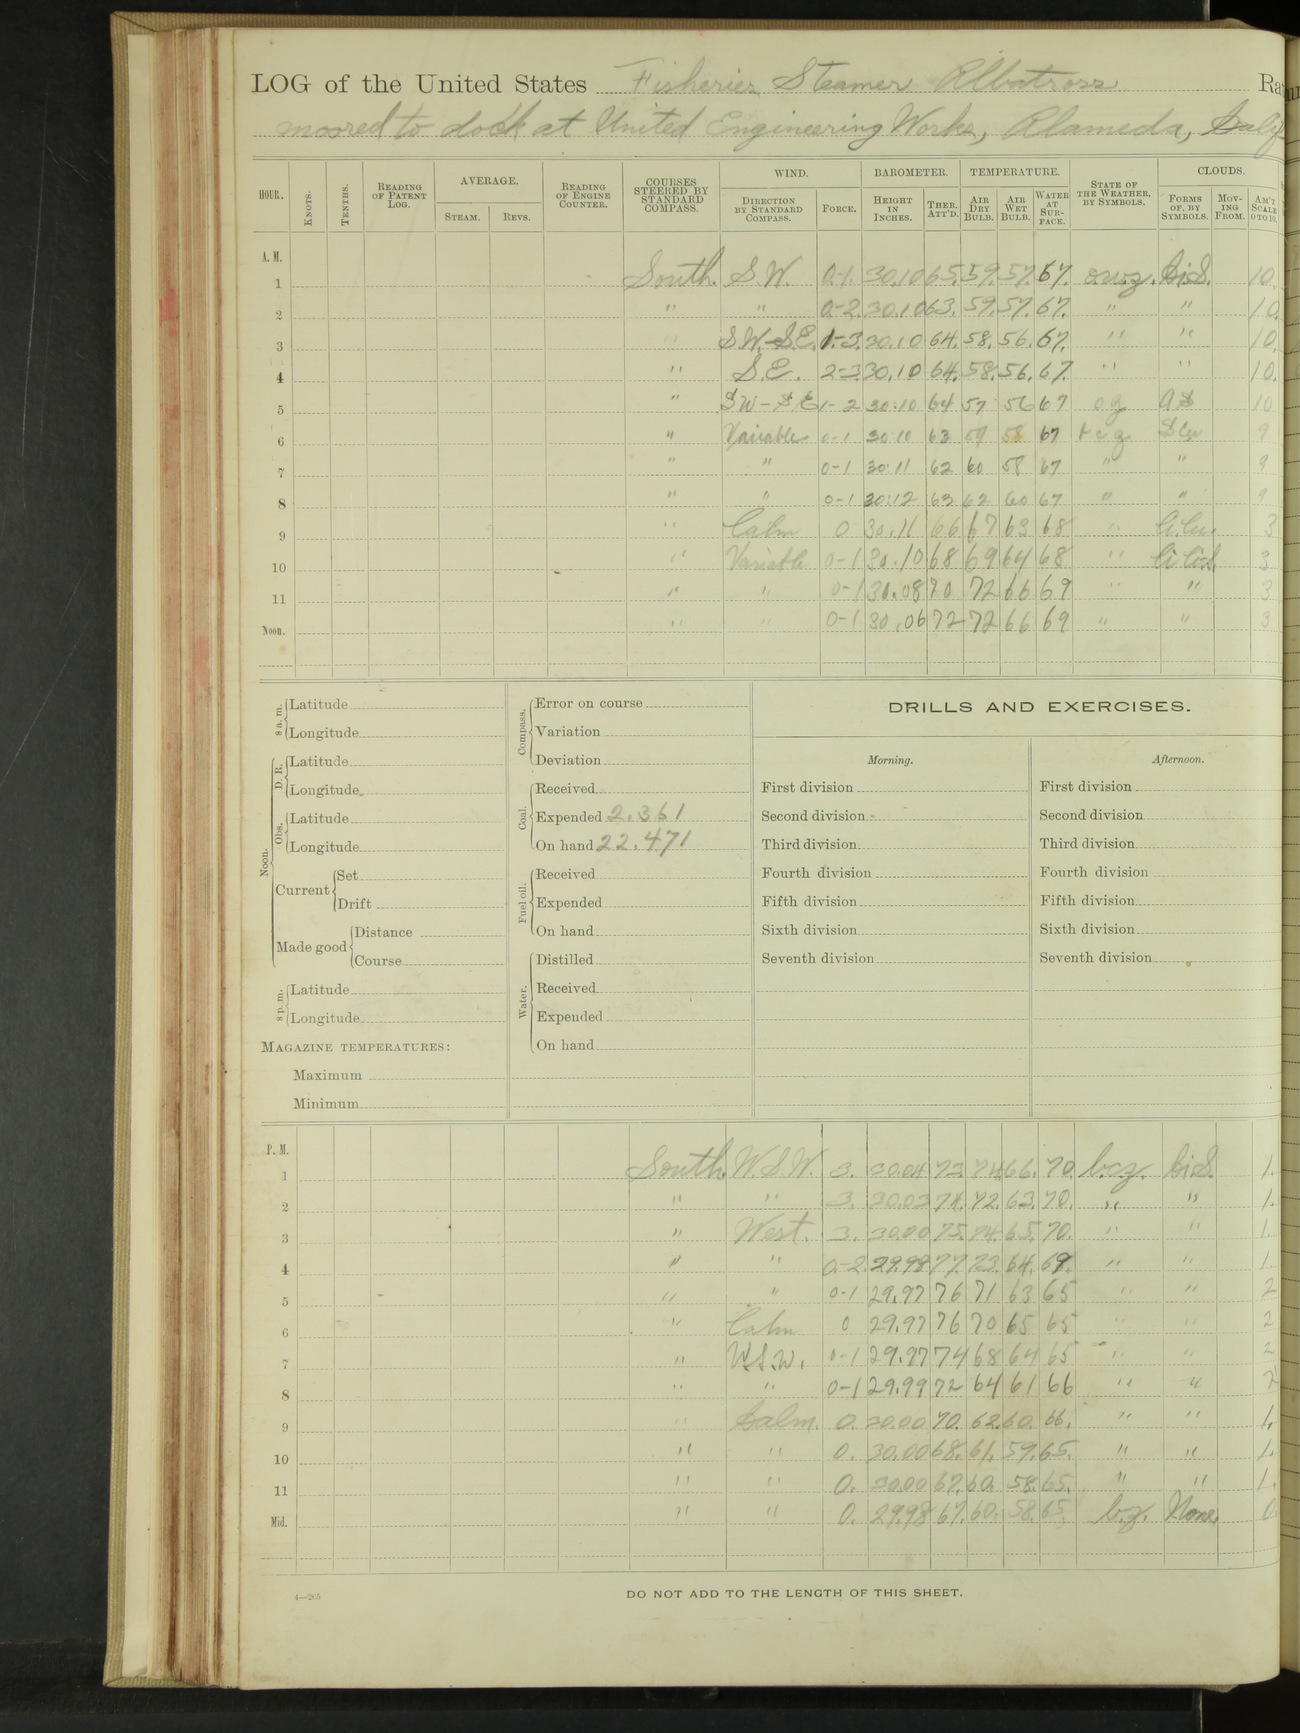 LOG of the United States Fisheries Steamer Albatross Ra
moored to dock at United Engineering Works, Alameda, Calif
HOUR. KNOTS. TENTHS. READING OF PATENT LOG. AVERAGE. STEAM. REVS. READING OF ENGINE COUNTER. COURSES STEERED BY STANDARD COMPASS. WIND. DIRECTION BY STANDARD COMPASS. FORCE. BAROMETER. HEIGHT IN INCHES. THER. ATT'D. TEMPERATURE. AIR DRY BULB. AIR WET BULB. WATER AT SURFACE. STATE OF THE WEATHER, BY SYMBOLS. CLOUDS. FORMS OF, BY SYMBOLS. MOVING FROM. AM'T SCALE 0 TO 10.
A. M.
1 South. S.W. 0-1. 30.10 65. 59. 57. 67. Ci.S. 10.
2 " " 0-2. 30.10 63. 59. 57. 67. " " 10.
3 " S.W.-S.E. 1-3. 30.10 64. 58. 56. 67. " " 10.
4 " S.E. 2-3. 30.10 64. 58. 56. 67. " " 10.
5 " SW-SE 1-2 30.10 64 57 56 67 og 10
6 " Variable 0-1 30.10 63 59 58 67 S cu 9
7 " " 0-1 30.11 62 60 58 67 " " 9
8 " " 0-1 30.12 63 62 60 67 " " 9
9 " Calm 0 30.11 66 67 63 68 " Ci.Cu. 3
10 " Variable 0-1 30.10 68 69 64 68 " 3
11 " " 0-1 30.08 70 72 66 69 " " 3
Noon. " " 0-1 30.06 72 72 66 69 " " 3
8 a. m. Latitude
Longitude
Noon. D. R. Latitude
Longitude
Obs. Latitude
Longitude
Current Set
Drift
Made good Distance
Course
8 p. m. Latitude
Longitude
MAGAZINE TEMPERATURES:
Maximum
Minimum
Compass. Error on course
Variation
Deviation
Coal. Received
Expended 2.361
On hand 22.471
Fuel oil. Received
Expended
On hand
Water. Distilled
Received
Expended
On hand
DRILLS AND EXERCISES.
Morning. Afternoon.
First division First division
Second division Second division
Third division Third division
Fourth division Fourth division
Fifth division Fifth division
Sixth division Sixth division
Seventh division Seventh division
P. M.
1 South. W.S.W. 3. 30.04 73. 74. 66. 70. b.c.z. Ci.S. 1.
2 " " 3. 30.03 74. 72. 63. 70. " " 1.
3 " West. 3. 30.00 75. 74. 65. 70. " " 1.
4 " " 0-2. 29.98 77. 73. 64. 69. " " 1.
5 " " 0-1 29.97 76 71 63 65 " " 2
6 " Calm 0 29.97 76 70 65 65 " " 2
7 " W.S.W. 0-1 29.97 74 68 64 65 " " 2
8 " " 0-1 29.99 72 64 61 66 " " 2
9 " Calm. 0. 30.00 70. 62. 60. 66. " " 1.
10 " " 0. 30.00 68. 61. 59. 65. " " 1.
11 " " 0. 30.00 67. 60. 58. 65. " " 1.
Mid. " " 0. 29.98 67. 60. 58. 65. b.z. None. 0
4—265 DO NOT ADD TO THE LENGTH OF THIS SHEET.